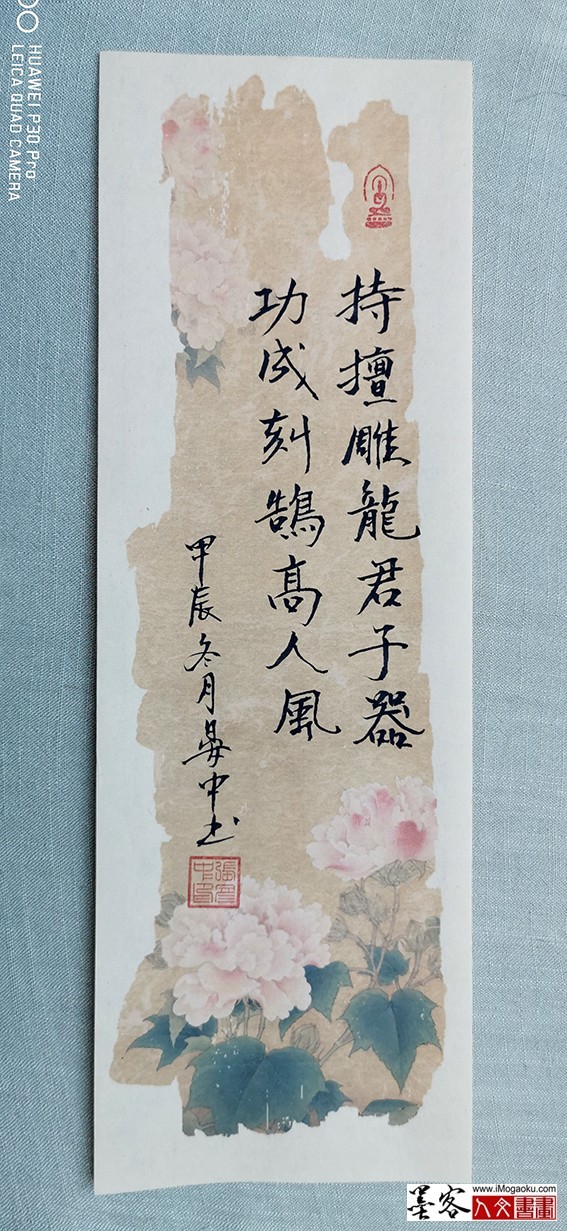 持擅雕龍君子器
功成刻鵠高人風
甲辰冬月晏中书
HUAWEI P30 Pro
LEICA QUAD CAMERA
www.iMogaoku.com
墨客 人文書畫